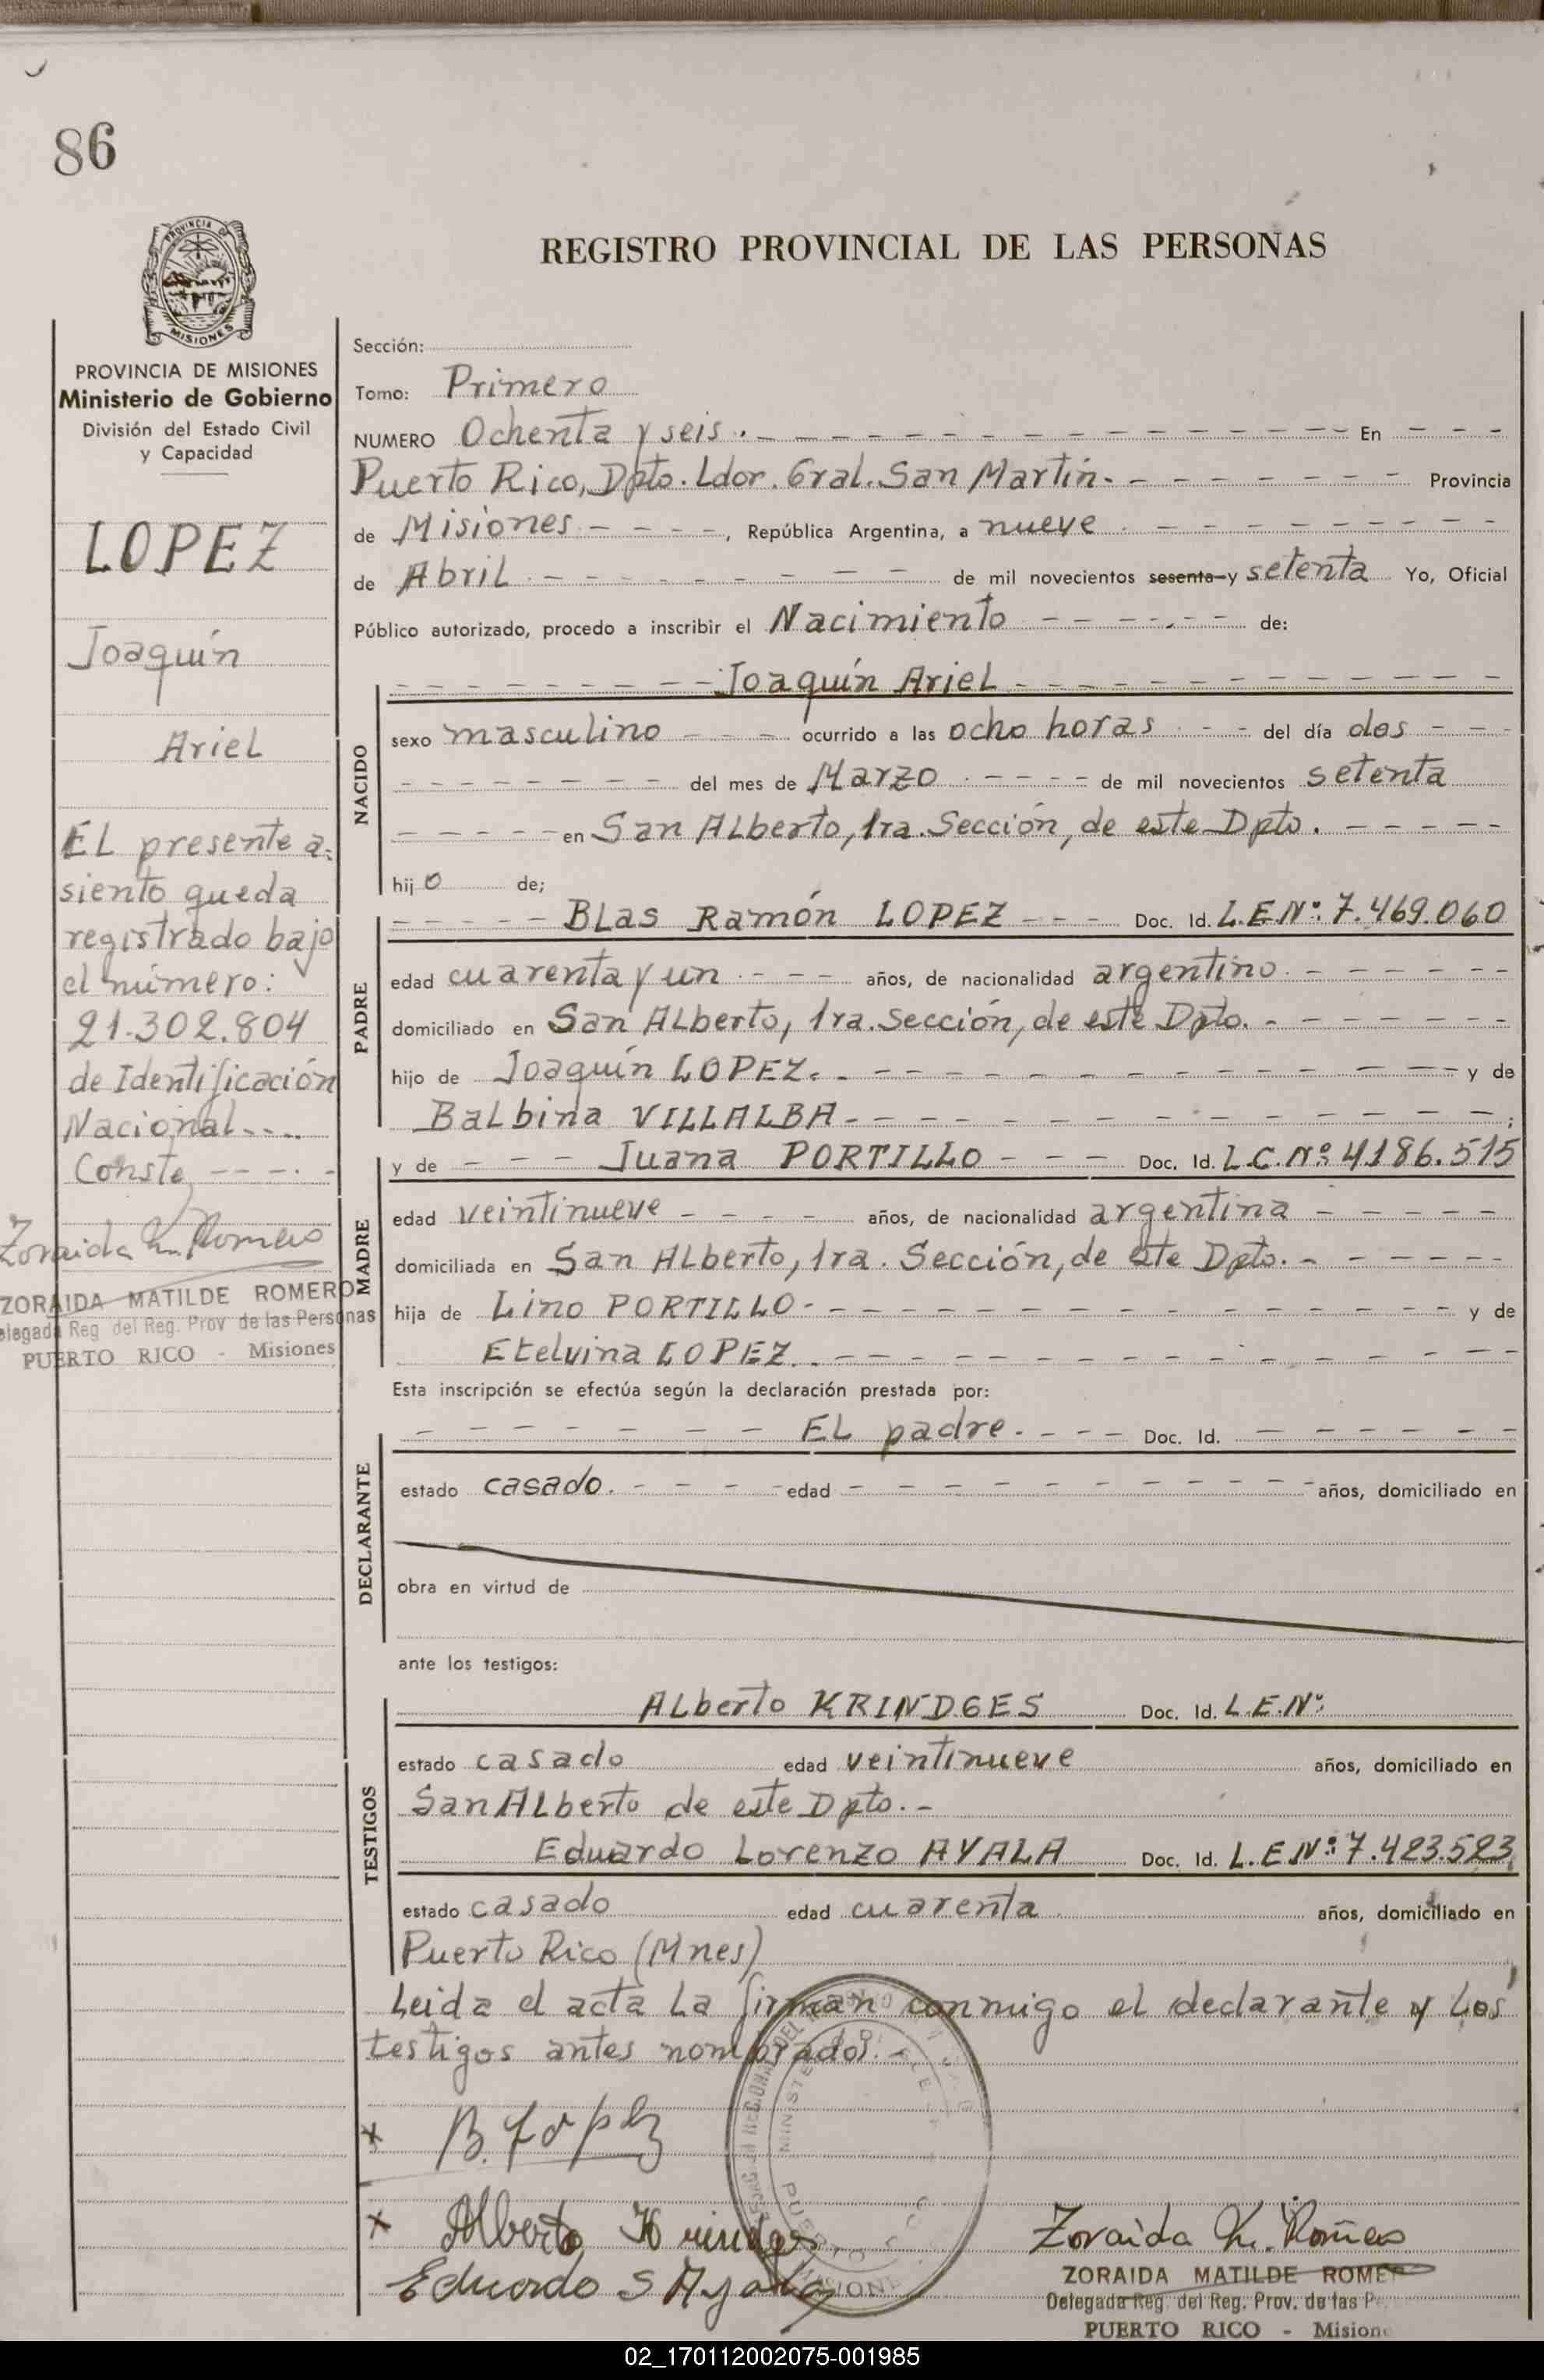 86
PROVINCIA DE
MISIONES
REGISTRO PROVINCIAL DE LAS PERSONAS
PROVINCIA DE MISIONES
Ministerio de Gobierno
División del Estado Civil
y Capacidad
LOPEZ
Joaquín
Ariel
EL presente a-
siento queda
registrado bajo
el número:
21.302.804
de Identificación
Nacional....
Conste - - - . -
Zoraida M. Romero
ZORAIDA MATILDE ROMERO
Delegada Reg del Reg. Prov de las Personas
PUERTO RICO - Misiones
Sección:
Tomo: Primero
NUMERO Ochenta y seis. - - - En - - -
Puerto Rico, Dpto. Ldor. Gral. San Martín. - - - Provincia
de Misiones - - - -, República Argentina, a nueve - - -
de Abril - - - de mil novecientos sesenta y setenta Yo, Oficial
Público autorizado, procedo a inscribir el Nacimiento - - - de:
NACIDO
- - - Joaquín Ariel - - -
sexo masculino - - - ocurrido a las ocho horas - - del día dos - - -
- - - del mes de Marzo - - - de mil novecientos setenta
- - - en San ALberto, 1ra. Sección, de este Dpto. - - -
hijo de;
PADRE
- - - BLas Ramón LOPEZ - - - Doc. Id. L.E.Nº: 7.469.060
edad cuarenta y un - - - años, de nacionalidad argentino - - -
domiciliado en San ALberto, 1ra. Sección, de este Dpto. - - -
hijo de Joaquín LOPEZ. - - - y de
BaLbina VILLALBA - - - ;
MADRE
y de - - - Juana PORTILLO - - - Doc. Id. L.C.Nº: 4186.515
edad veintinueve - - - años, de nacionalidad argentina - - -
domiciliada en San ALberto, 1ra. Sección, de este Dpto. - - -
hija de Lino PORTILLO - - - y de
Etelvina LOPEZ. - - -
Esta inscripción se efectúa según la declaración prestada por:
DECLARANTE
- - - EL padre. - - - Doc. Id. - - -
estado casado. - - - edad - - - años, domiciliado en
obra en virtud de
ante los testigos:
TESTIGOS
ALberto KRINDGES Doc. Id. L.E.Nº:
estado casado edad veintinueve años, domiciliado en
San ALberto de este Dpto. -
Eduardo Lorenzo AYALA Doc. Id. L.E.Nº: 7.423.523
estado casado edad cuarenta años, domiciliado en
Puerto Rico (Mnes)
Leida el acta La firman conmigo el declarante y Los
testigos antes nombrados. -
x B. Lopez
x Alberto Krindges
Eduardo S Ayala
Zoraida M. Romero
ZORAIDA MATILDE ROMERO
Delegada Reg. del Reg. Prov. de las
PUERTO RICO - Misiones
02_170112002075-001985